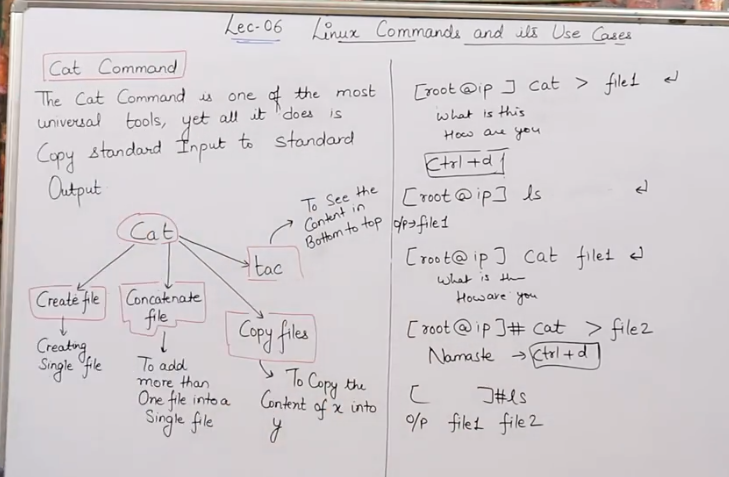 Lec-06 Linux Commands and its Use Cases
Cat Command
The Cat Command is one of the most
universal tools, yet all it does is
Copy standard Input to Standard
Output
Cat
Create file
Creating
Single file
Concatenate
file
To add
more than
One file into a
Single file
Copy files
To Copy the
Content of x into
y
tac
To See the
Content in
Bottom to top
[root@ip ] cat > file1 ↵
What is this
How are you
Ctrl+d
[root@ip] ls ↵
o/p→file1
[root@ip ] cat file1 ↵
What is
How are you
[root@ip]# cat > file2
Namaste → Ctrl+d
[ ]#ls
o/p file1 file2